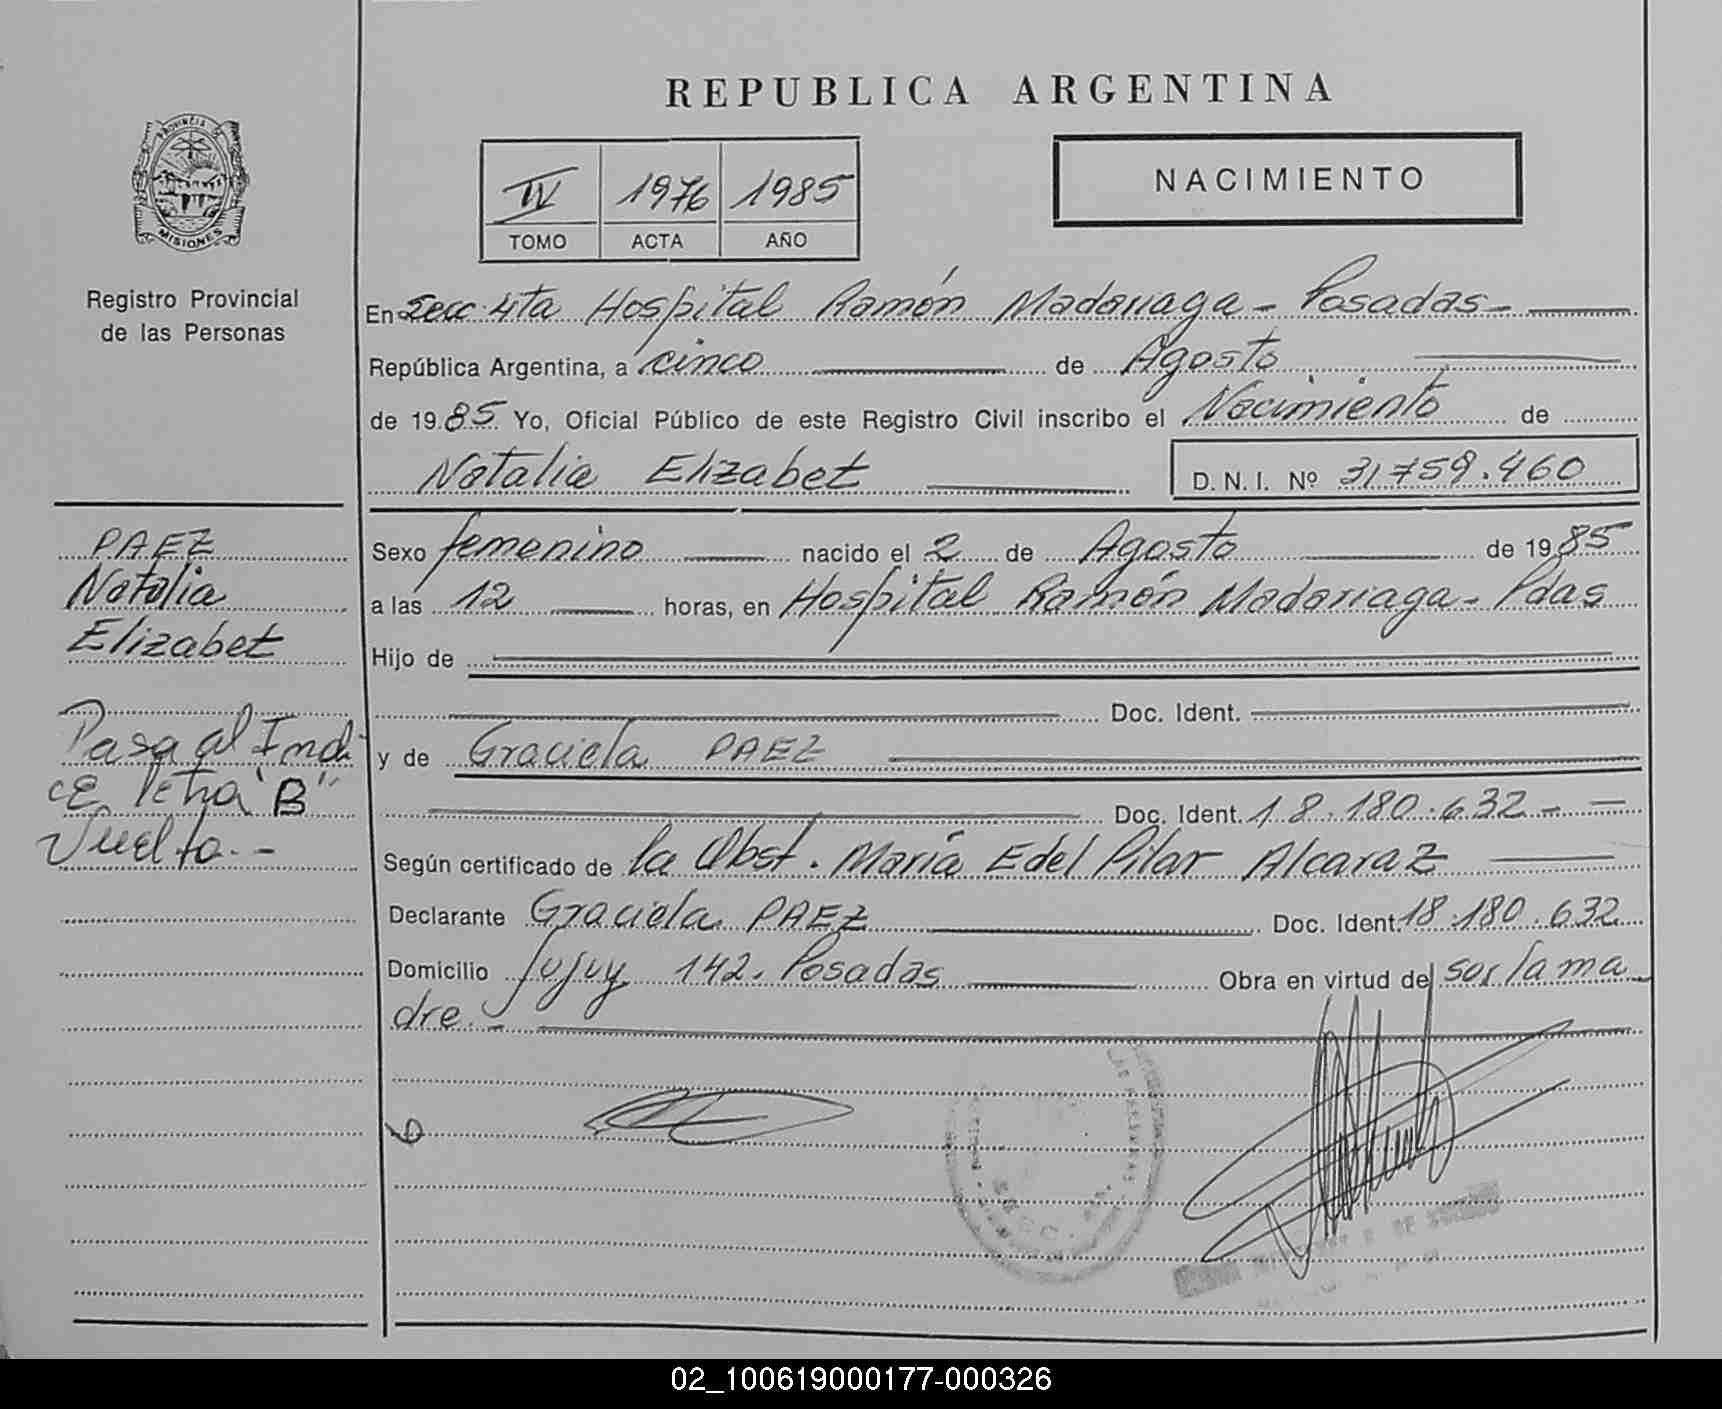 REPUBLICA ARGENTINA
PROVINCIA DE
MISIONES
Registro Provincial
de las Personas
IV 1976 1985
TOMO ACTA AÑO
NACIMIENTO
En Secc. 4ta Hospital Ramón Madariaga - Posadas -
República Argentina, a cinco de Agosto
de 1985 Yo, Oficial Público de este Registro Civil inscribo el Nacimiento de
Natalia Elizabet
D. N. I. Nº 31759.460
PAEZ
Natalia
Elizabet
Pasa al Indi
ce letra "B"
Vuelta. -
Sexo femenino nacido el 2 de Agosto de 1985
a las 12 horas, en Hospital Ramón Madariaga - Pdas
Hijo de
Doc. Ident.
y de Graciela PAEZ
Doc. Ident. 18.180.632 - -
Según certificado de la Obst. María Edel Pilar Alcaraz
Declarante Graciela PAEZ Doc. Ident. 18.180.632
Domicilio Jujuy 142. Posadas Obra en virtud de ser la ma
dre. -
02_100619000177-000326